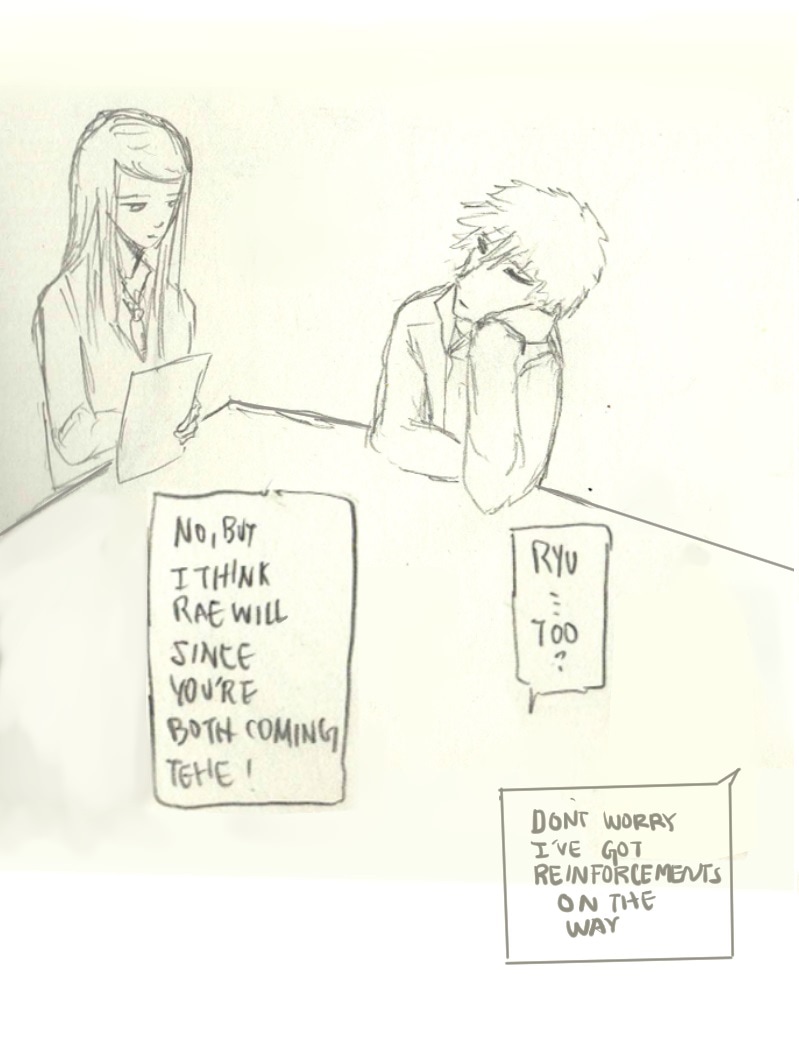 NO, BUT
I THINK
RAE WILL
SINCE
YOU'RE
BOTH COMING
TEHE!
RYU
...
TOO
?
DON'T WORRY
I'VE GOT
REINFORCEMENTS
ON THE
WAY